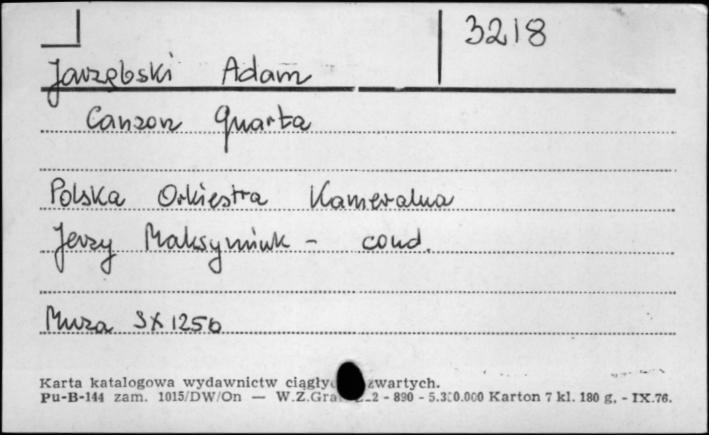 3218
Jarzębski Adam
Canzon Quarta
Polska Orkiestra Kameralna
Jerzy Maksymiuk - cond.
Muza SX 1256
Karta katalogowa wydawnictw zwartych.
Pu-B-144 zam. 1015/DW/On — W.Z.Graf. - 890 - 5.300.000 Karton 7 kl. 180 g. - IX.76.